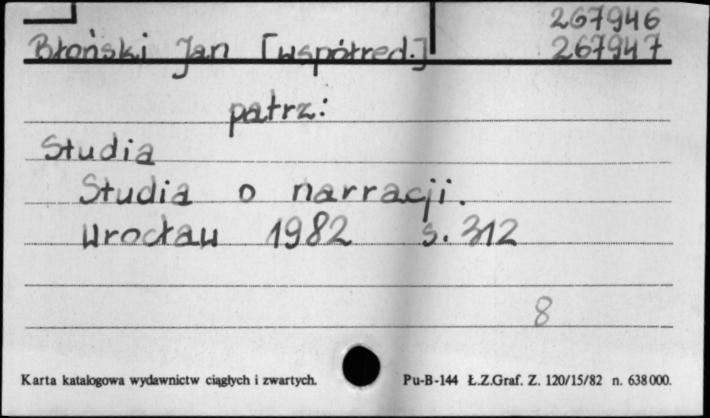 267946
Błoński Jan [współred.] 267947
patrz:
Studia
Studia o narracji.
Wrocław 1982 s. 312
8
Karta katalogowa wydawnictw ciągłych i zwartych. Pu-B-144 Ł.Z.Graf. Z. 120/15/82 n. 638000.